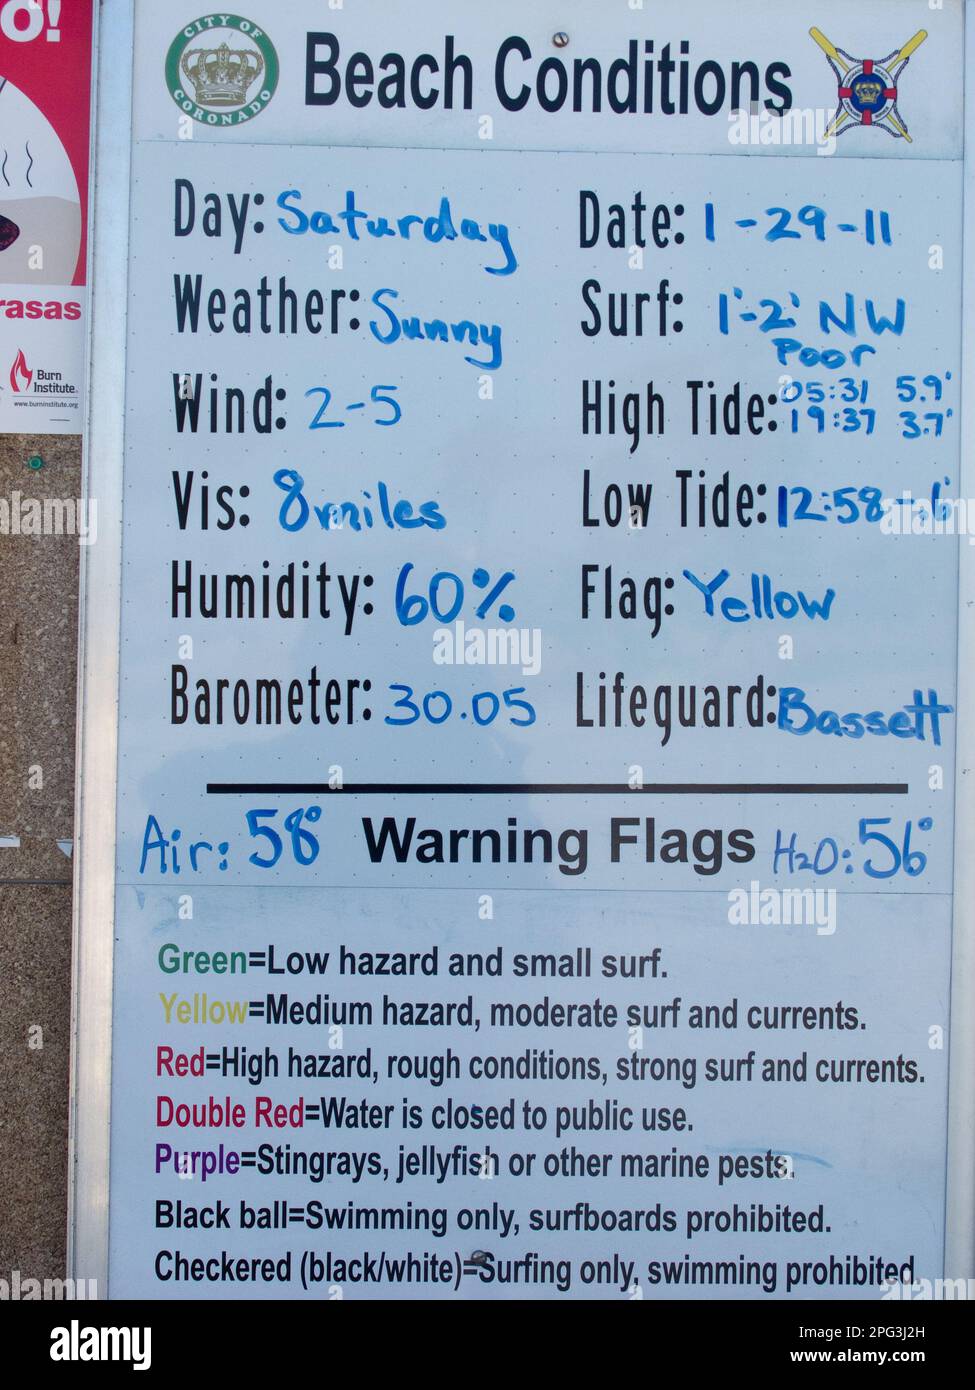 O!
CITY OF
CORONADO
Beach Conditions
Day: Saturday
Date: 1-29-11
Weather: Sunny
Surf: 1'-2' NW
Poor
Wind: 2-5
High Tide: 05:31 5.9'
19:37 3.7'
Vis: 8 miles
Low Tide: 12:58 -.6'
Humidity: 60%
Flag: Yellow
Barometer: 30.05
Lifeguard: Bassett
Air: 58°
Warning Flags
H2O: 56°
Green=Low hazard and small surf.
Yellow=Medium hazard, moderate surf and currents.
Red=High hazard, rough conditions, strong surf and currents.
Double Red=Water is closed to public use.
Purple=Stingrays, jellyfish or other marine pests.
Black ball=Swimming only, surfboards prohibited.
Checkered (black/white)=Surfing only, swimming prohibited
rasas
Burn
Institute
www.burninstitute.org
alamy
Image ID: 2PG3J2H
www.alamy.com